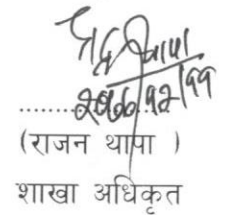 २०७७/१२/११
....................
(राजन थापा )
शाखा अधिकृत